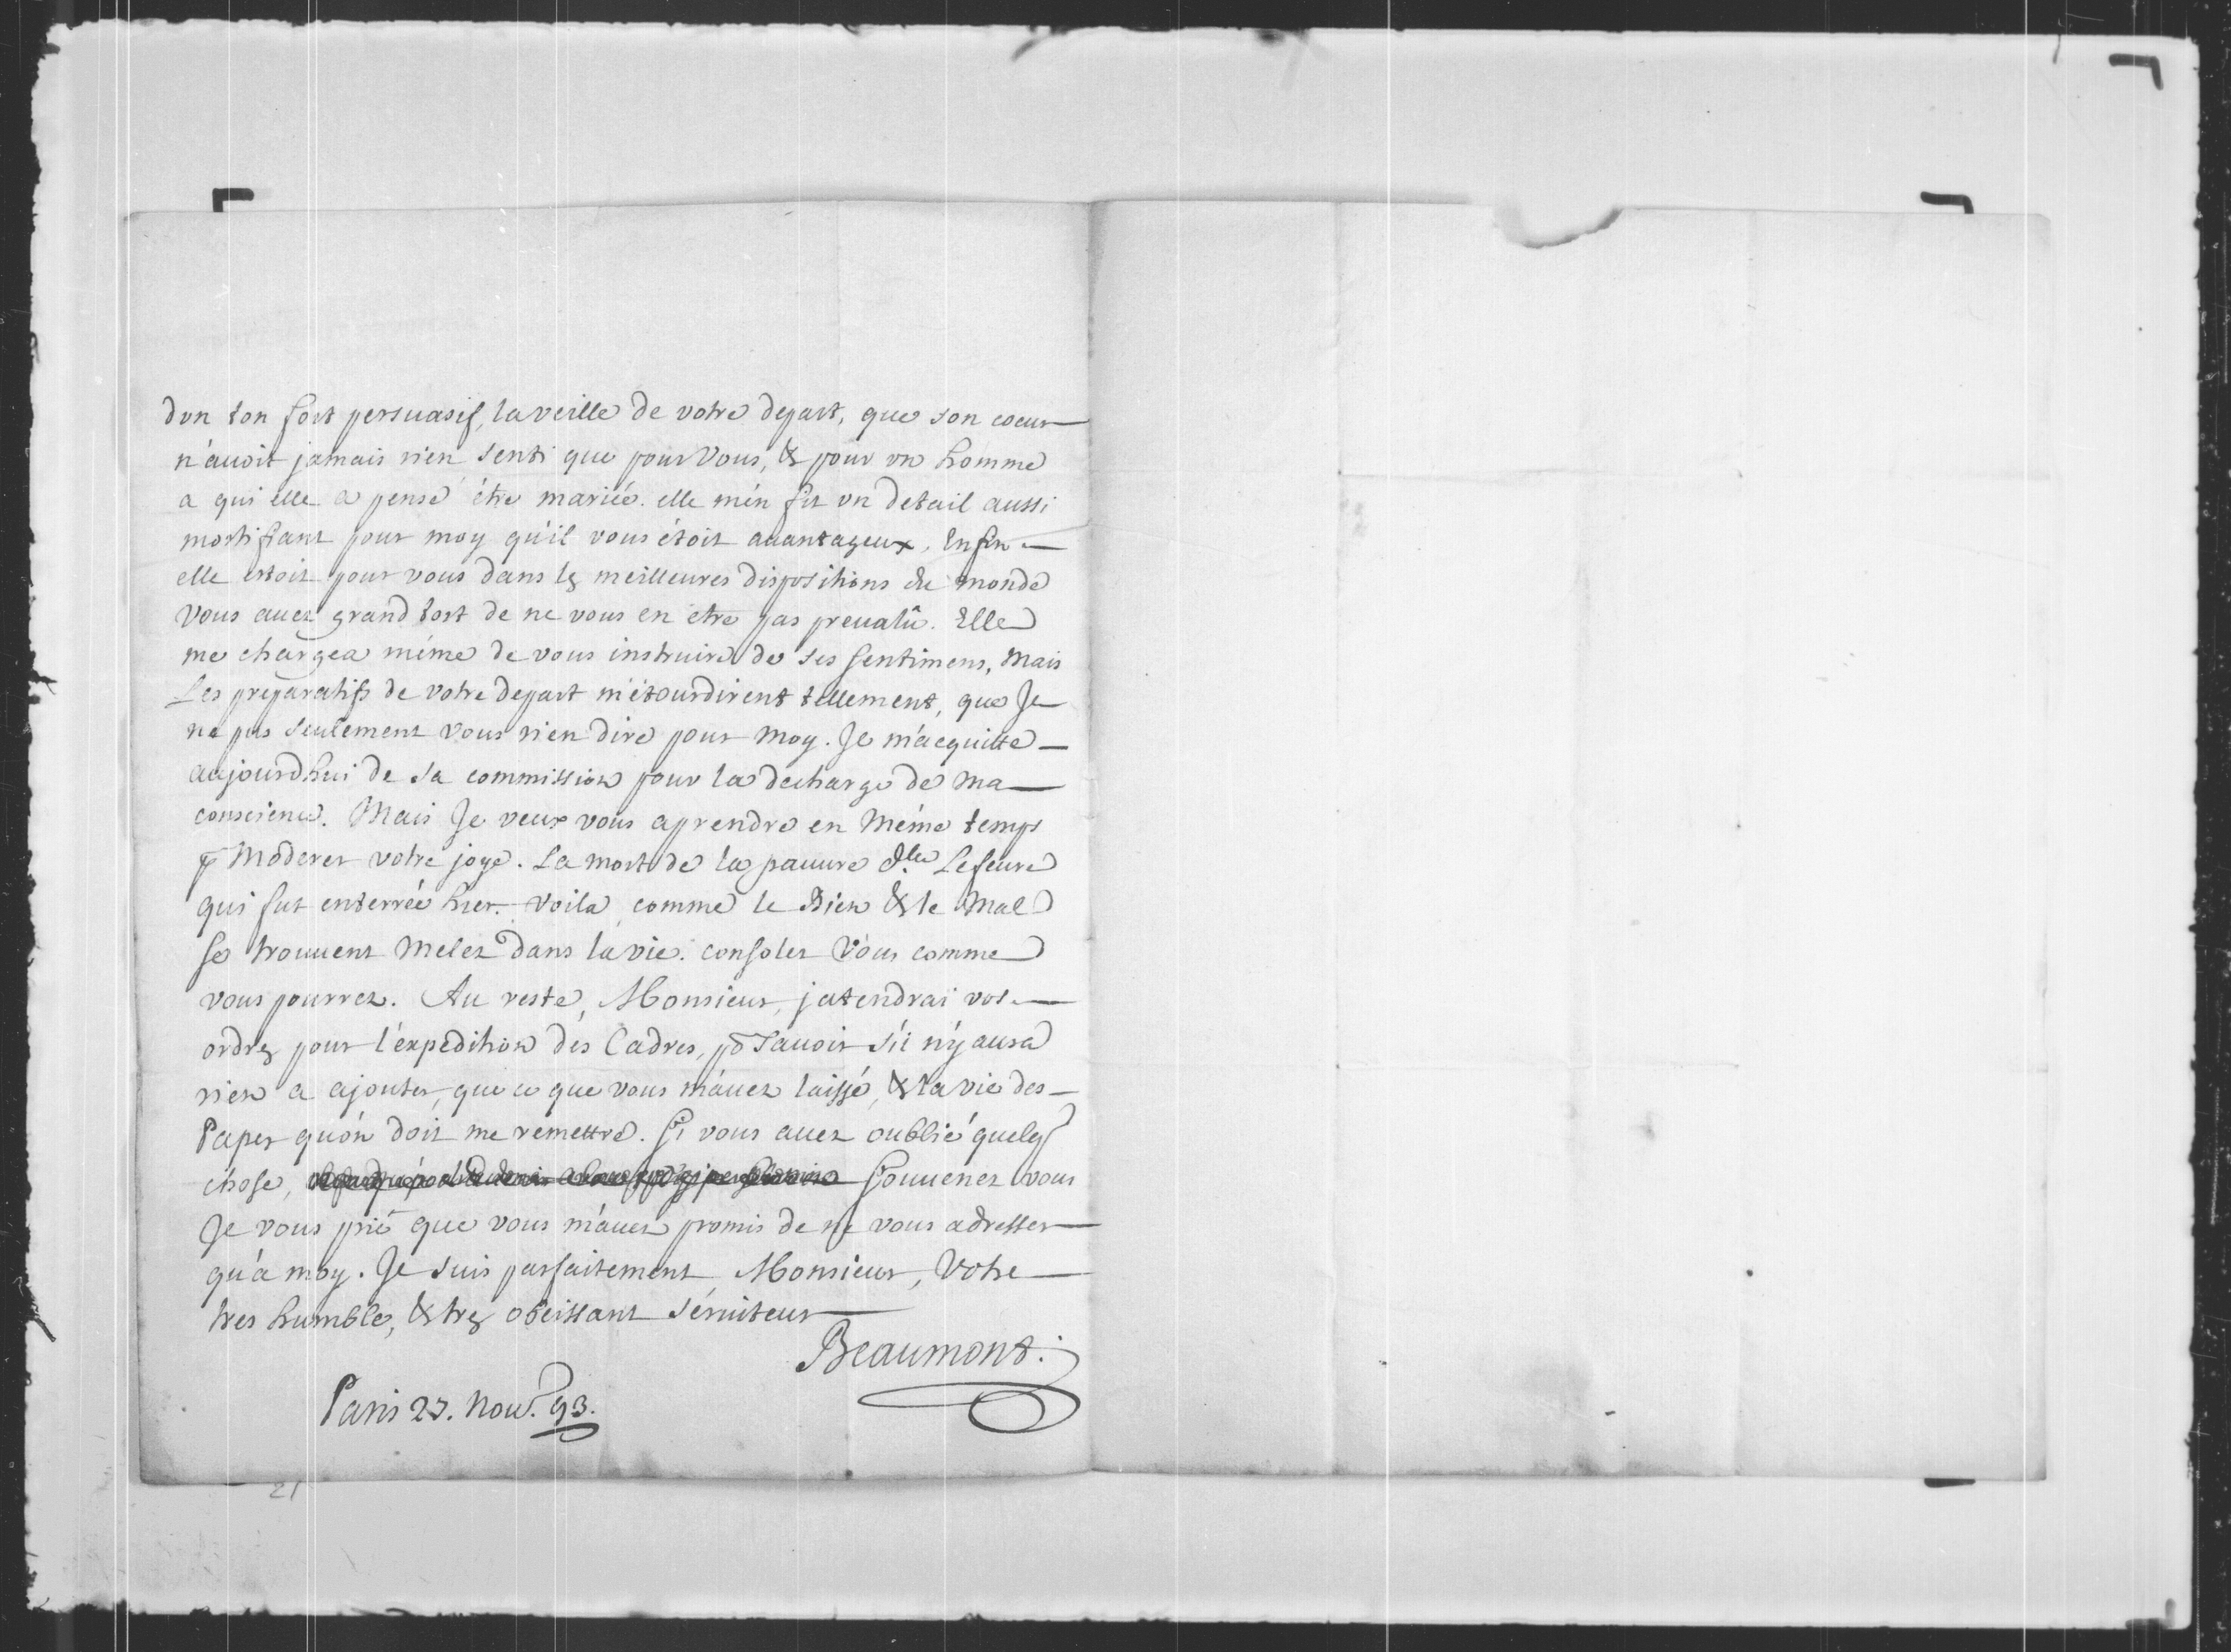 dvn ton fort persuasif, la veille de votre depart, que son coeur
n'auoit jamais rien senti que pour Vous, & pour vn homme
a qui elle a pensé être mariée. elle m'en fit vn detail aussi
mortifiant pour moy qu'il vous étoit auantageux. Enfin
elle estoit pour vous dans les meilleures dispositions du monde
Vous auez grand tort de ne vous en etre pas preualû. Elle
me chargea même de vous instruire de ses sentimens, Mais
Les preparatifs de votre depart m'étourdirent tellement, que Je
ne pus seulement vous rien dire pour moy. Je m'acquitte
aujourdhui de sa commission pour la decharge de Ma
conscience. Mais Je veux vous aprendre en Même temps
p Moderer votre joye. La mort de la pauure dle Lefeure
qui fut enterrée hier. Voila comme le Bien & le Mal
se trouuent Melez dans la vie. consolez Vous comme
vous pourrez. Au reste, Monsieur, j'atendrai vos
ordres pour l'expedition des Cadres, po sauoir s'il n'y aura
rien a ajouter, que ce que vous m'auez laissé, & la vie des
Papes qu'on doit me remettre. Si vous auez oublié quelq
chose, Souuenez vous
Je vous prie que vous m'auez promis de ne vous adresser
qu'a moy. Je suis parfaitement Monsieur, Votre
tres humble, & tres obeissant séruiteur
Beaumont.
Paris 27. Nou. 93.
21